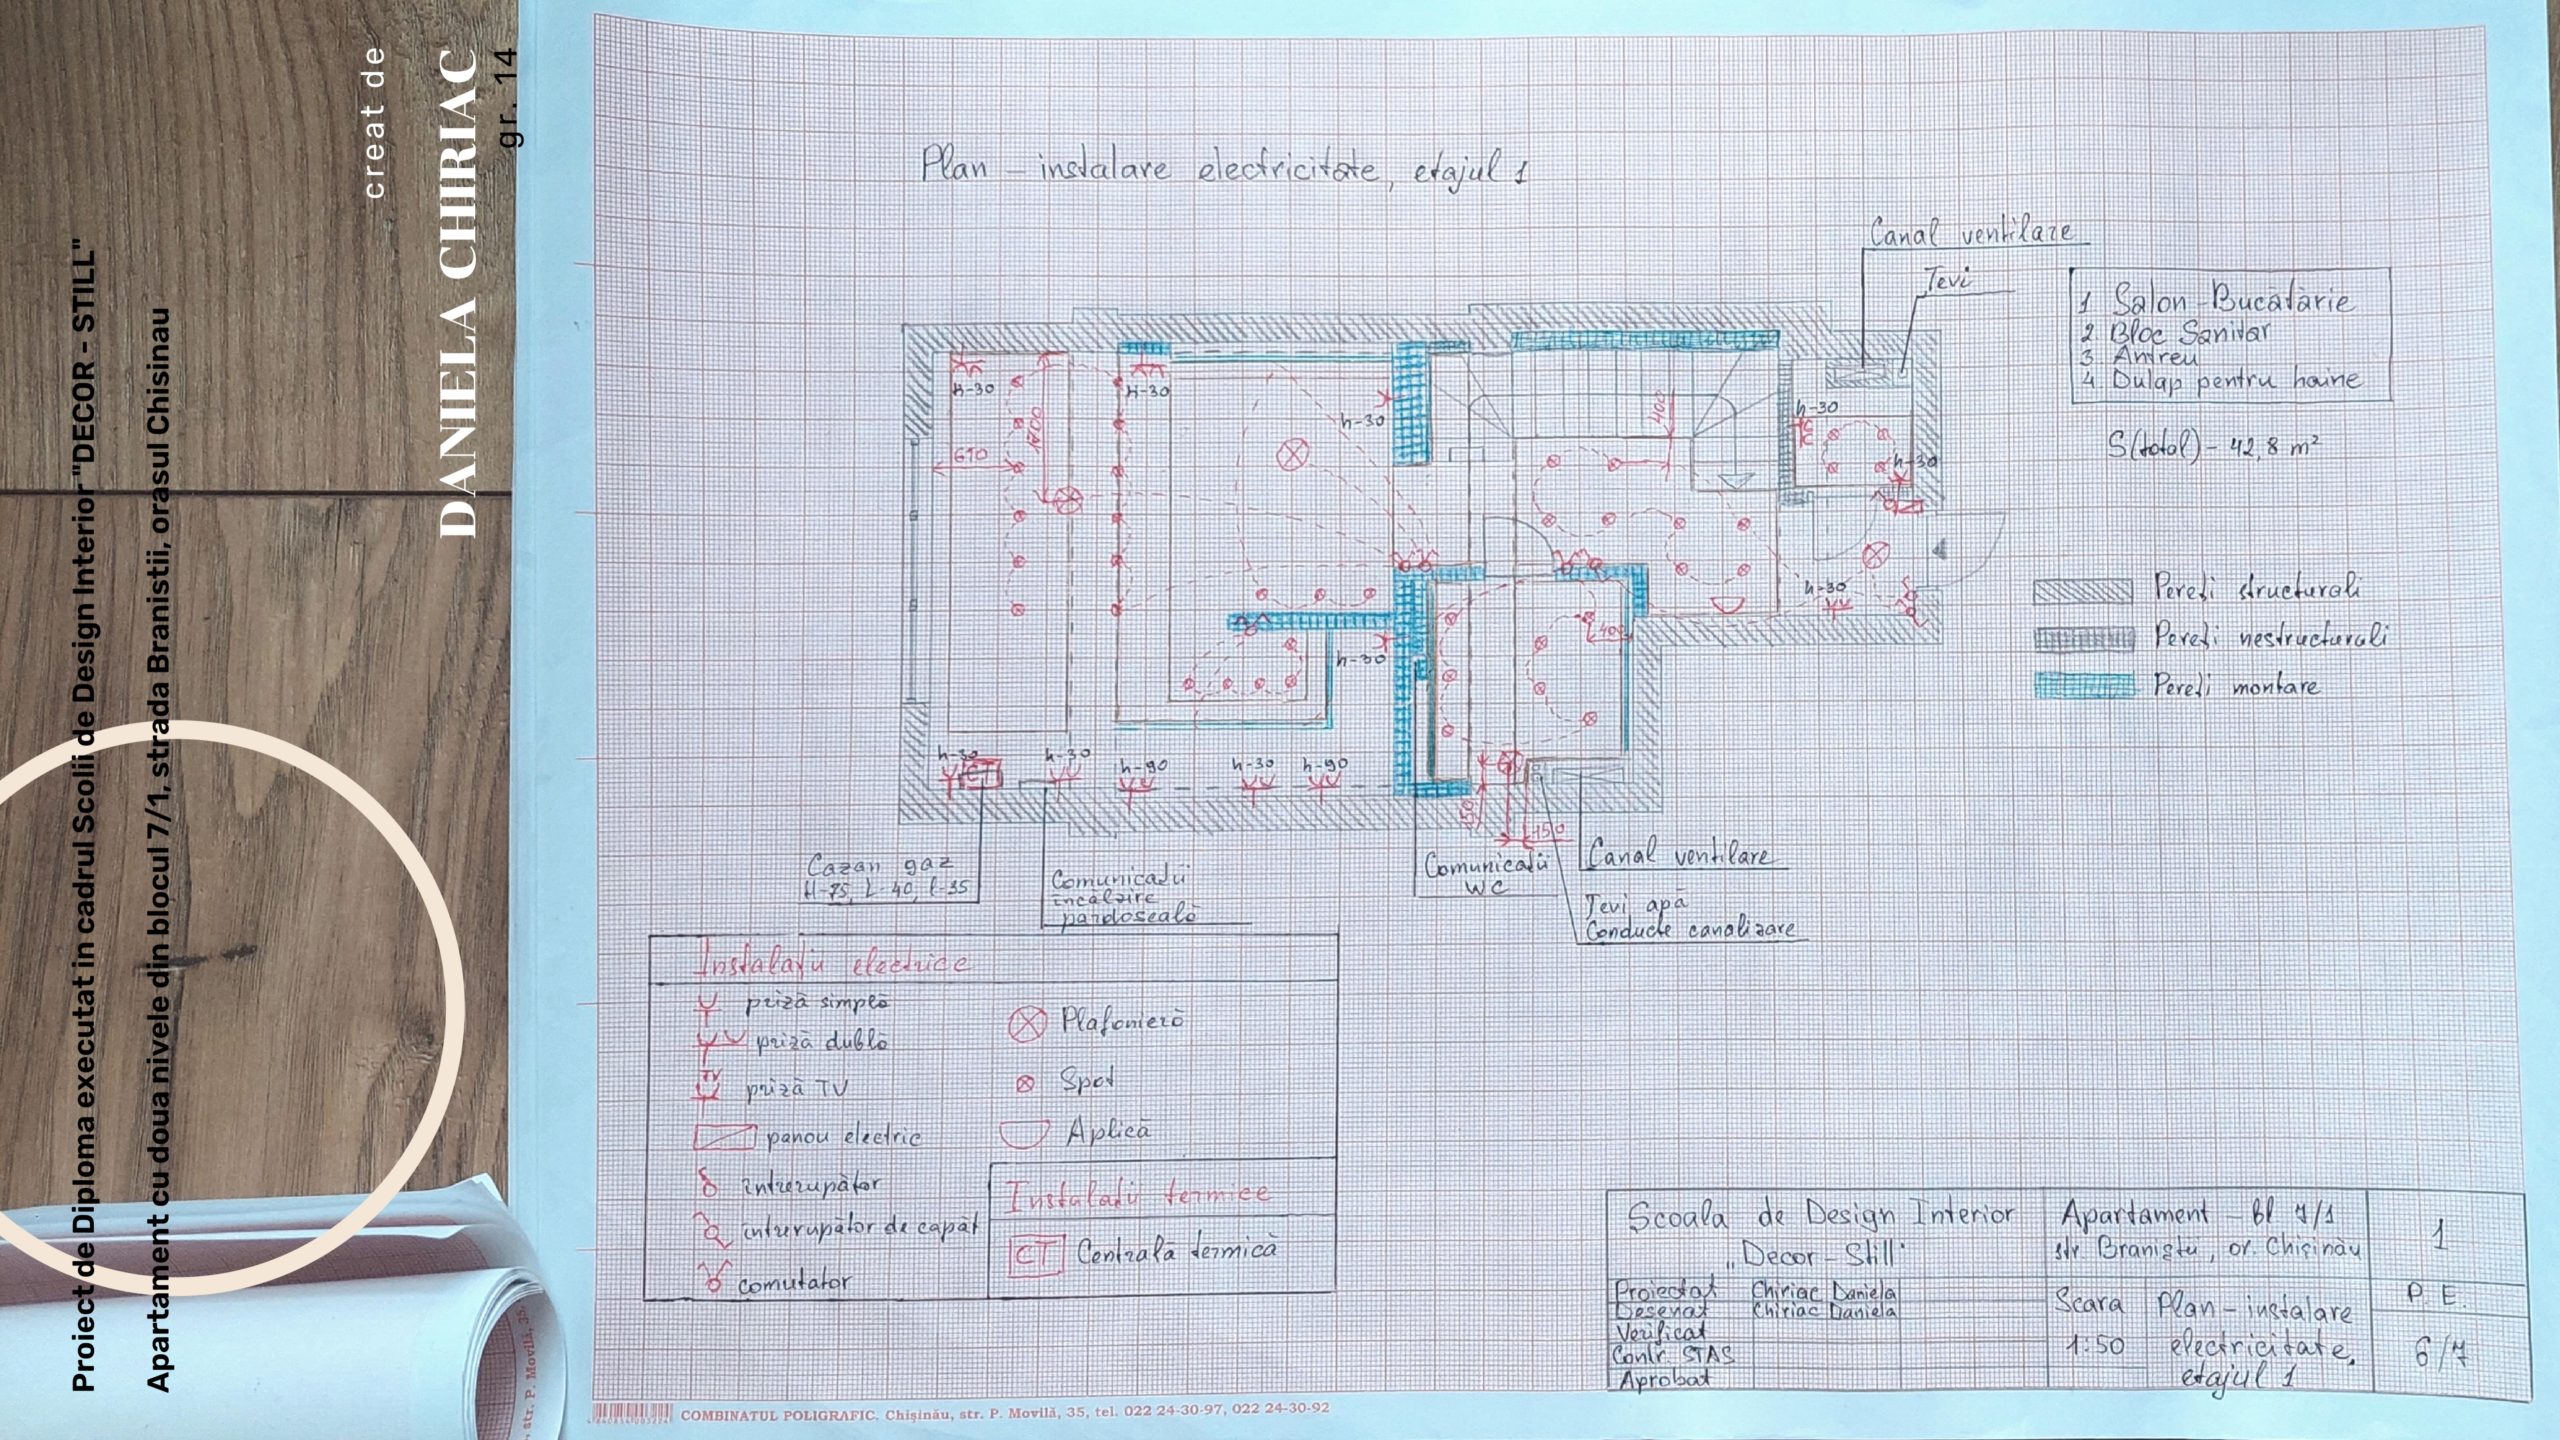 Proiect de Diploma executat in cadrul Scolii de Design Interior "DECOR - STILL"
Apartament cu doua nivele din blocul 7/1, strada Branistii, orasul Chisinau
creat de
DANIELA CHIRIAC
gr. 14
Plan - instalare electricitate, etajul 1
Canal ventilare
Tevi
1 Salon-Bucătărie
2 Bloc Sanitar
3. Antreu
4. Dulap pentru haine
S(total) - 42,8 m²
Pereți structurali
Pereți nestructurali
Pereți montare
h-30
h-30
h-30
h-30
h-30
h-30
h-30
610
400
400
h-30
h-30
h-90
h-30
h-90
150
Cazan gaz
H-75, L-40, l-35
Comunicații
încălzire
pardoseală
Comunicații
WC
Canal ventilare
Tevi apă
Conducte canalizare
Instalații electrice
priză simplă
priză dublă
TV priză TV
panou electric
întrerupător
întrerupător de capăt
comutator
Plafonieră
Spot
Aplică
Instalații termice
CT Centrală termică
Scoala de Design Interior
„Decor-Still"
Proiectat Chiriac Daniela
Desenat Chiriac Daniela
Verificat
Contr. STAS
Aprobat
Apartament - Bl 7/1
str Braniștii, or. Chișinău
1
Scara
1:50
Plan - instalare
electricitate,
etajul 1
P. E.
6/7
COMBINATUL POLIGRAFIC, Chişinău, str. P. Movilă, 35, tel. 022 24-30-97, 022 24-30-92
, str. P. Movilă, 35,